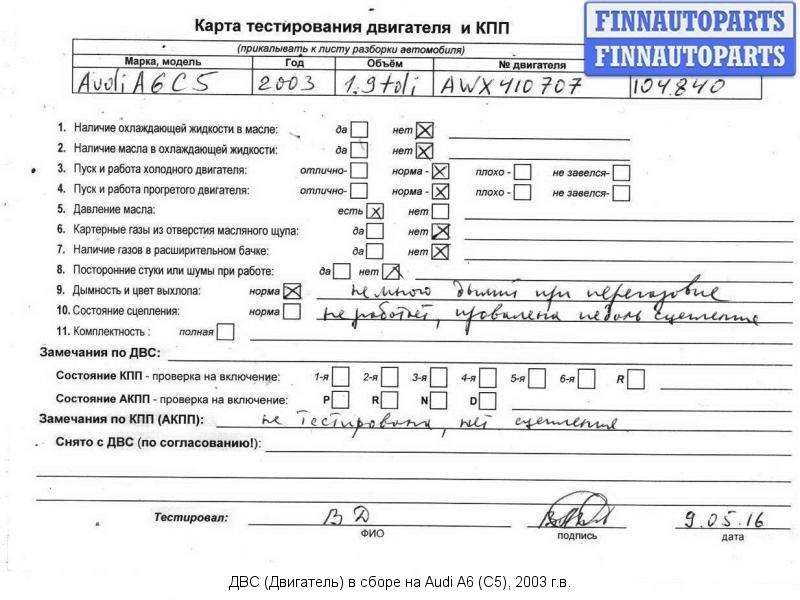 Карта тестирования двигателя и КПП
FINNAUTOPARTS
FINNAUTOPARTS
(прикалывать к листу разборки автомобиля)
Марка, модель Год Объём № двигателя
Audi A6 C5 2003 1.9 tdi AWX410707 104.840
1. Наличие охлаждающей жидкости в масле: да нет
2. Наличие масла в охлаждающей жидкости: да нет
3. Пуск и работа холодного двигателя: отлично- норма - плохо - не завелся-
4. Пуск и работа прогретого двигателя: отлично- норма - плохо - не завелся-
5. Давление масла: есть нет
6. Картерные газы из отверстия масляного щупа: да нет
7. Наличие газов в расширительном бачке: да нет
8. Посторонние стуки или шумы при работе: да нет
9. Дымность и цвет выхлопа: норма немного дымит при перегазовке
10. Состояние сцепления: норма не работает, провалена педаль сцепления
11. Комплектность : полная
Замечания по ДВС:
Состояние КПП - проверка на включение: 1-я 2-я 3-я 4-я 5-я 6-я R
Состояние АКПП - проверка на включение: P R N D
Замечания по КПП (АКПП): не тестирована, нет сцепления
Снято с ДВС (по согласованию!):
Тестировал: ВД 9.05.16
ФИО подпись дата
ДВС (Двигатель) в сборе на Audi A6 (C5), 2003 г.в.